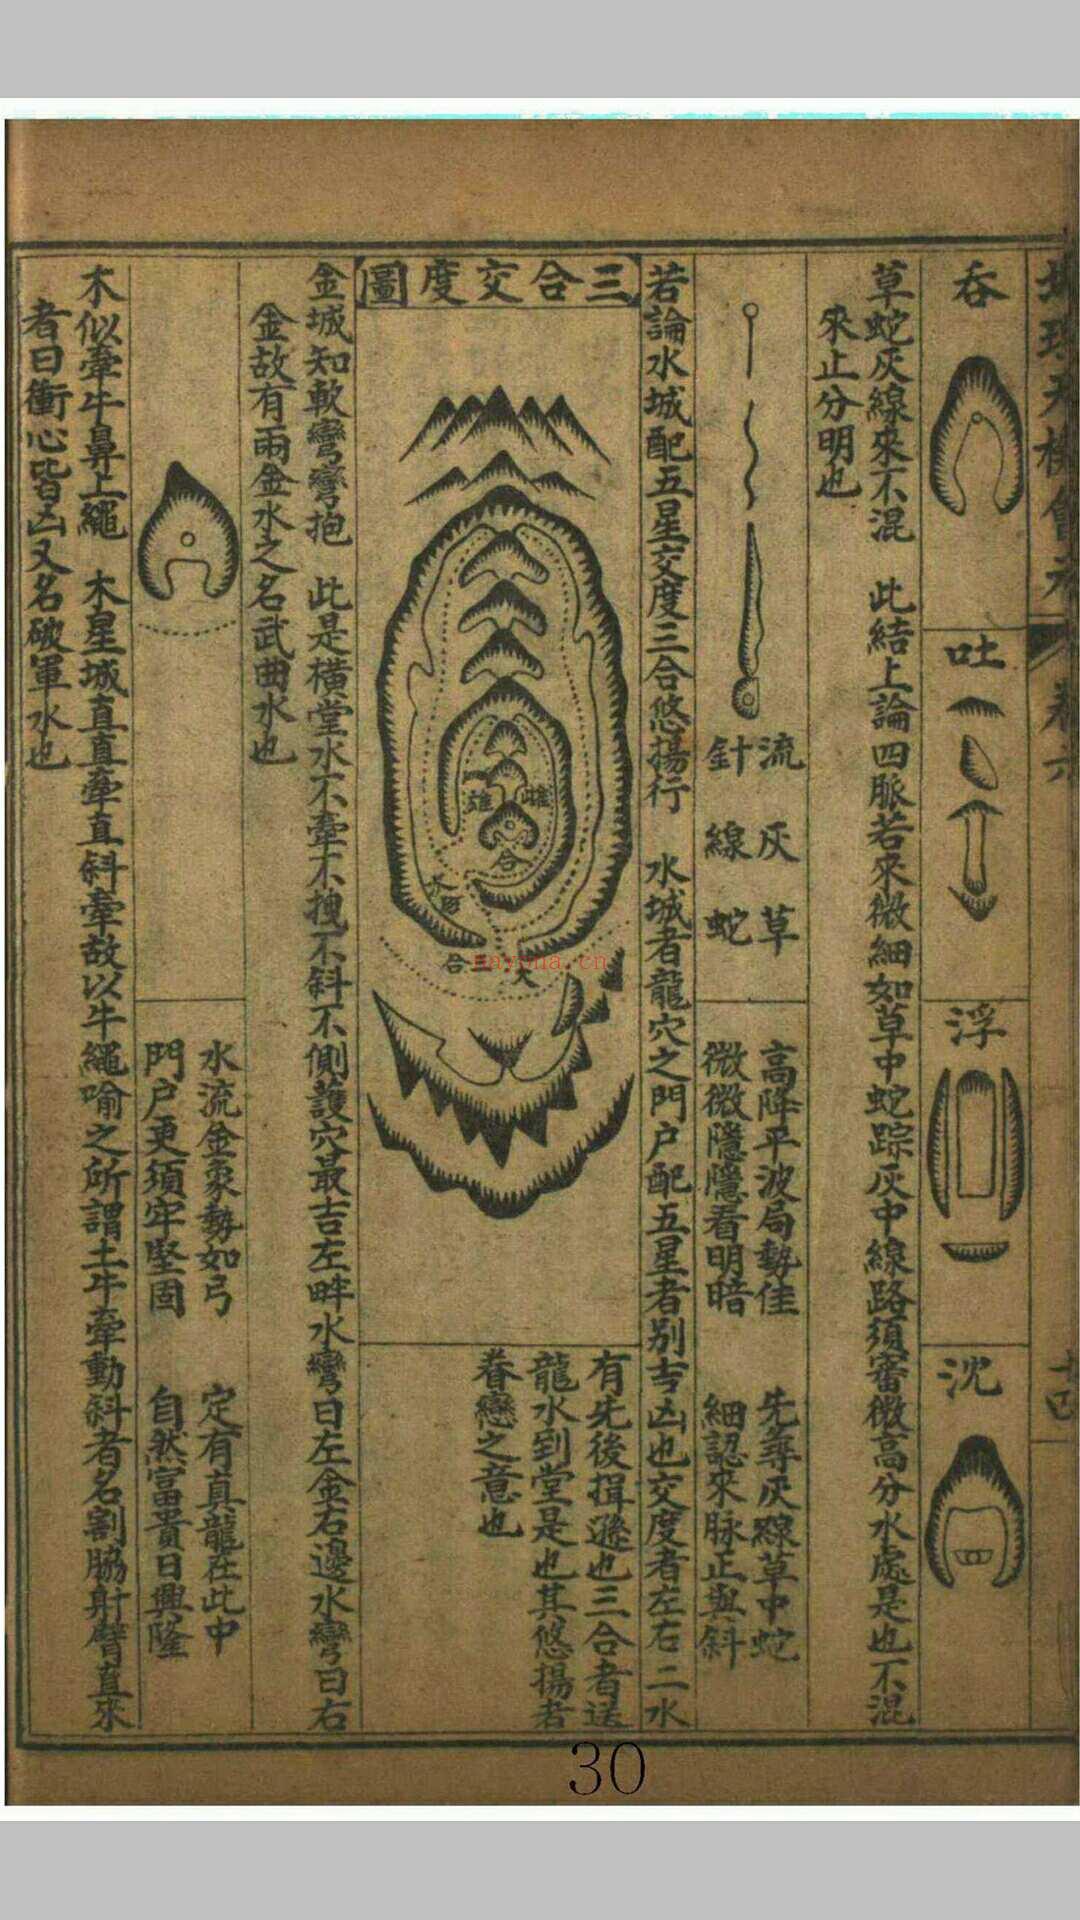 吞
吐
浮
沈
草蛇灰線來不混　此結上論四脈若來微細如草中蛇踪灰中線路須審微高分水處是也不混
來止分明也
流　灰　草
針　線　蛇
高降平波局勢佳　先尋灰線草中蛇
微微隱隱看明暗　細認來脉正與斜
若論水城配五星交度三合悠揚行　水城者龍穴之門户配五星者别吉凶也交度者左右二水
有先後揖遜也三合者送
龍水到堂是也其悠揚者
眷戀之意也
三合交度圖
雌
雄
合
合三大
金城知軟彎彎抱　此是橫堂水不牽不拽不斜不側護穴最吉左畔水彎曰左金右邊水彎曰右
金故有兩金水之名武曲水也
水流金象勢如弓　定有真龍在此中
門户更須牢堅固　自然富貴日興隆
木似牽牛鼻上繩　木星城直直牽直斜牽故以牛繩喻之所謂土牛牽動斜者名割脇射臂直來
者曰衝心皆凶又名破軍水也
卷六
十四
30
nayona.cn